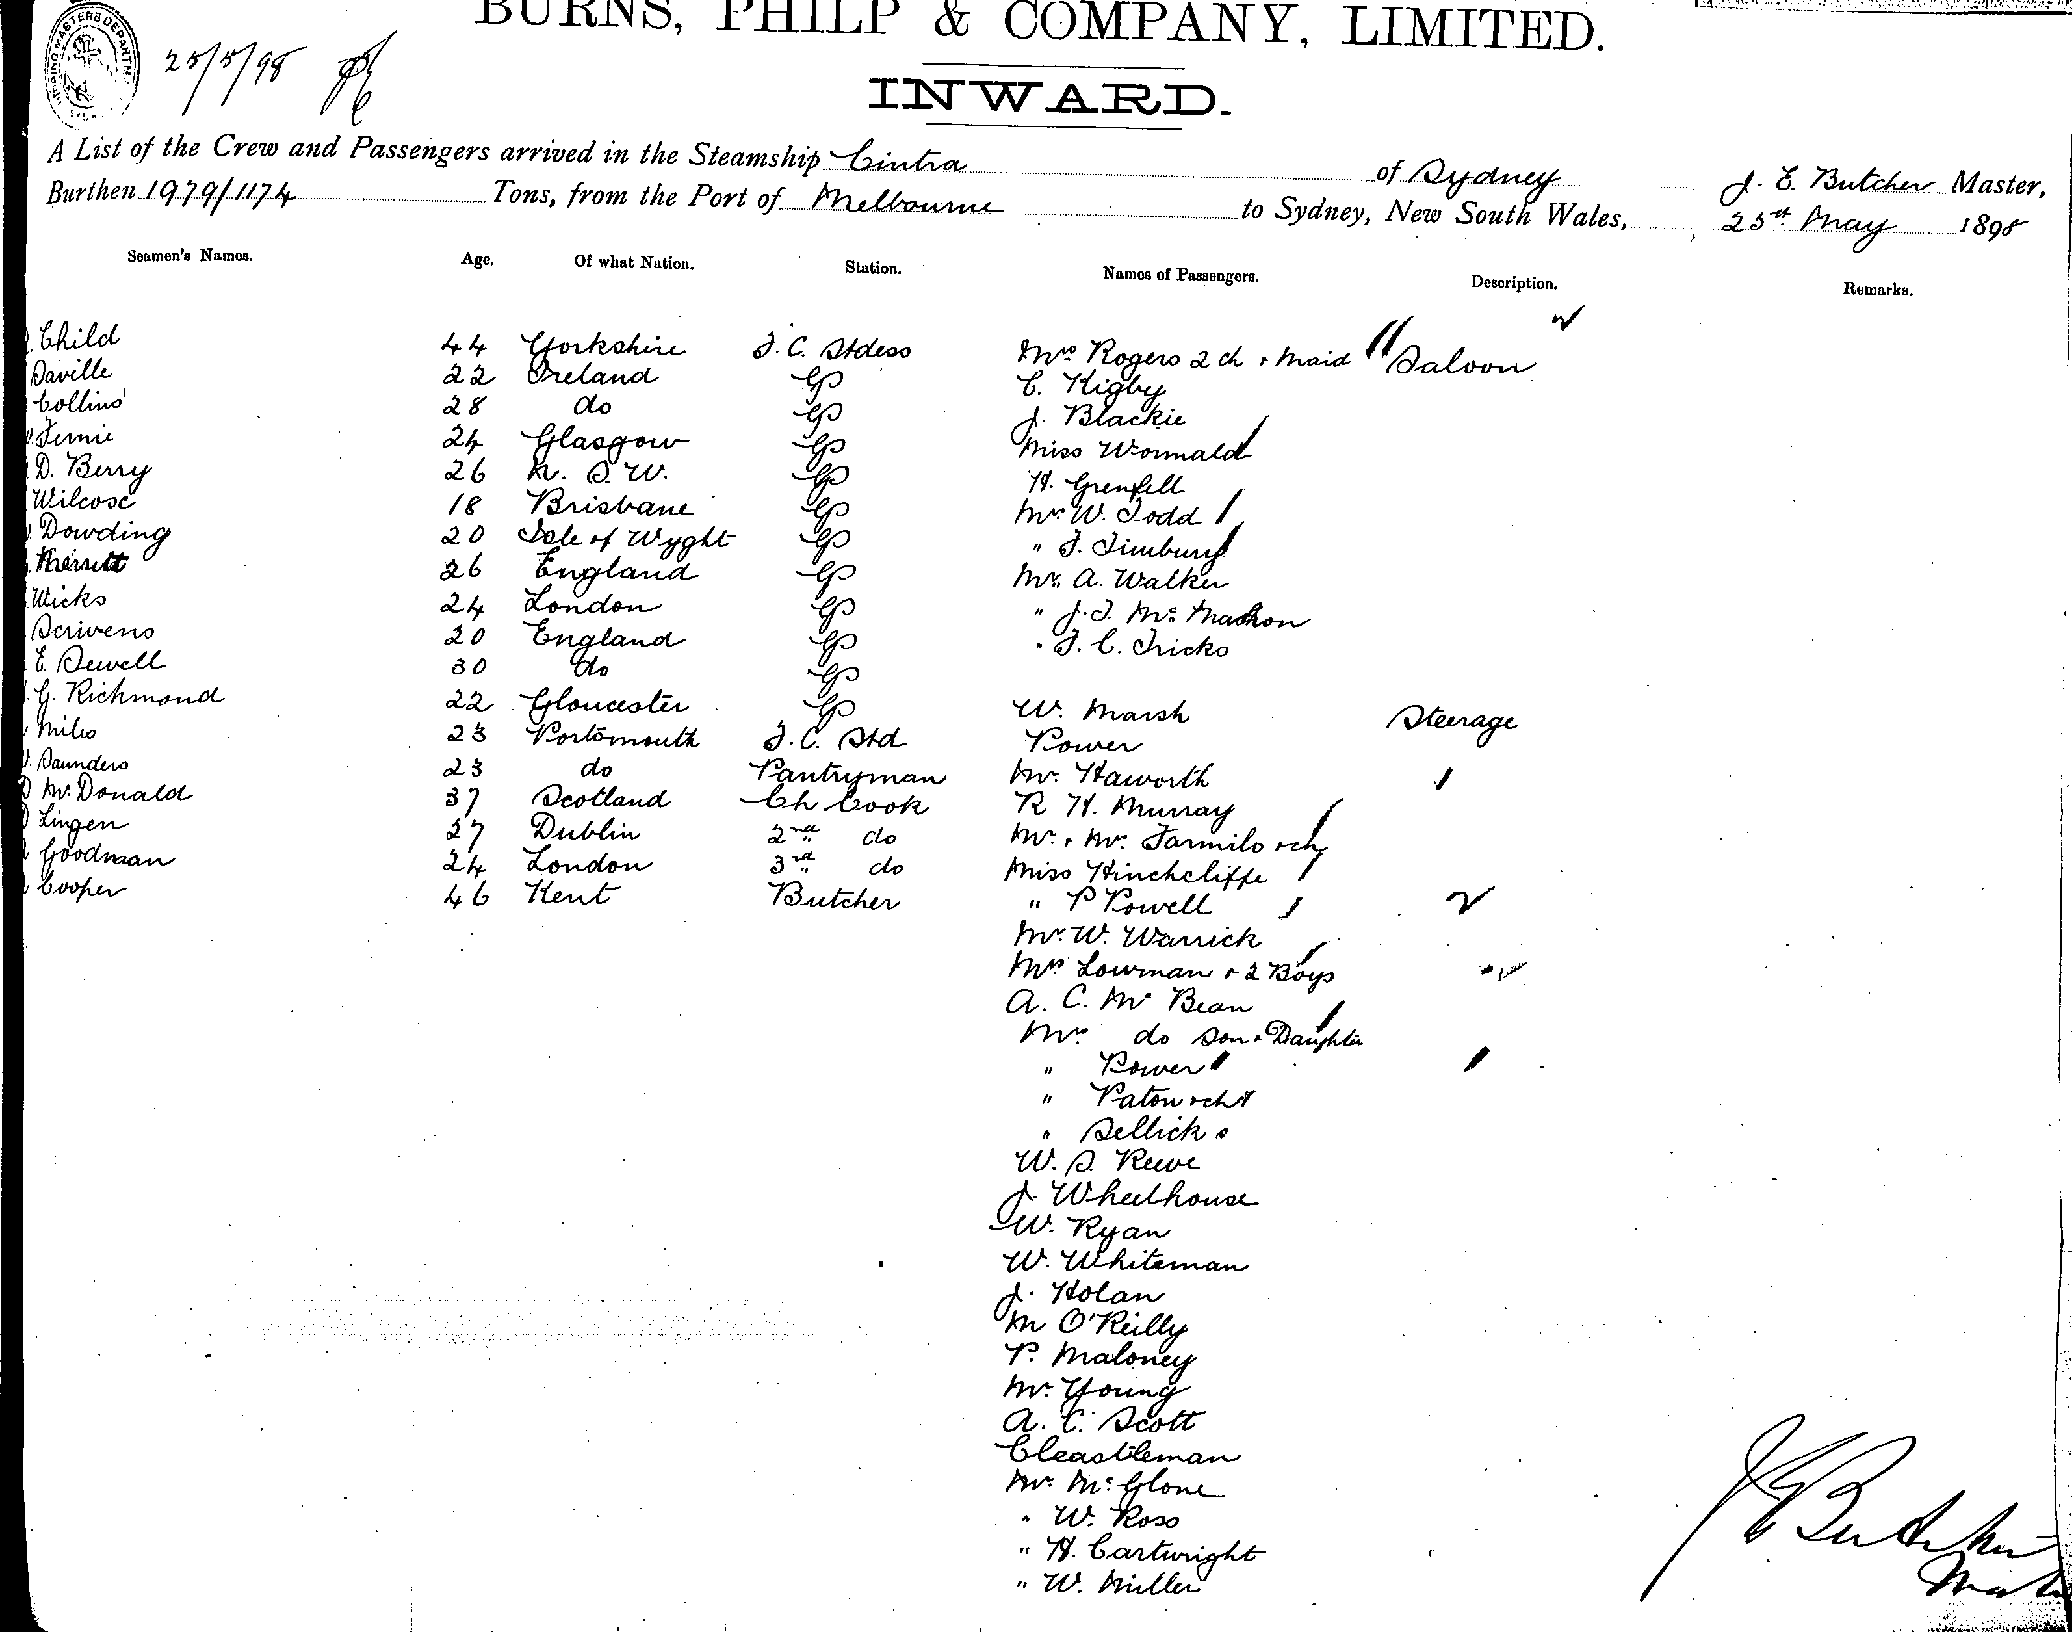 BURNS, PHILP & COMPANY, LIMITED.
25/5/98
INWARD.
A List of the Crew and Passengers arrived in the Steamship Cintra of Sydney J. E. Butcher Master,
Burthen 1979/1174 Tons, from the Port of Melbourne to Sydney, New South Wales, 25th May 1898
Seamen's Names. Age. Of what Nation. Station. Names of Passengers. Description. Remarks.
Child 44 Yorkshire F.C. Stdess Mrs Rogers 2 ch + Maid Saloon
Saville 22 Ireland C. Kigby
Collins 28 do J. Blackie
Fernie 24 Glasgow Miss Wormald
D. Berry 26 N. S. W. H. Grenfell
Wilcose 18 Brisbane Mrs W. Todd
Dowding 20 Isle of Wyght " F. Timbury
Merritt 26 England Mr. A. Walker
Wicks 24 London " J. F. Mc Mahon
Scrivens 20 England " F. C. Tricks
E. Sewell 30 do
G. Richmond 22 Gloucester W. Marsh Steerage
Miles 23 Portsmouth F. C. Std Power
Saunders 23 do Pantryman Mr. Haworth
McDonald 37 Scotland Ch Cook R H. Murray
Lingen 27 Dublin 2nd do Mr. + Mrs. Farmilo + ch
Goodman 24 London 3rd do Miss Hinchcliffe
Cooper 46 Kent Butcher " P Powell
Mr. W. Warrick
Mrs Lowman + 2 Boys
A. C. Mc Bean
Mrs do Son + Daughter
" Power
" Paton + ch
" Sellick
W. S. Reeve
J. Wheelhouse
W. Ryan
W. Whiteman
J. Holan
M O'Reilly
P. Maloney
Mr. Young
A. C. Scott
Cleastleman
Mr. Mc Glone
" W. Ross
" H. Cartwright
" W. Miller
J E Butcher